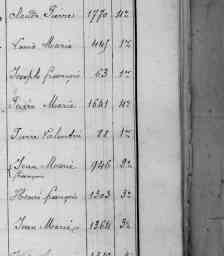 Claude Pierre 1770 4e
Louis Marie 445 1e
Joseph François 63 1e
Pierre Marie 1641 4e
Pierre Valentin 22 1e
Jean Marie 946 2e
François
Henri François 1303 3e
Jean Marie 1364 3e